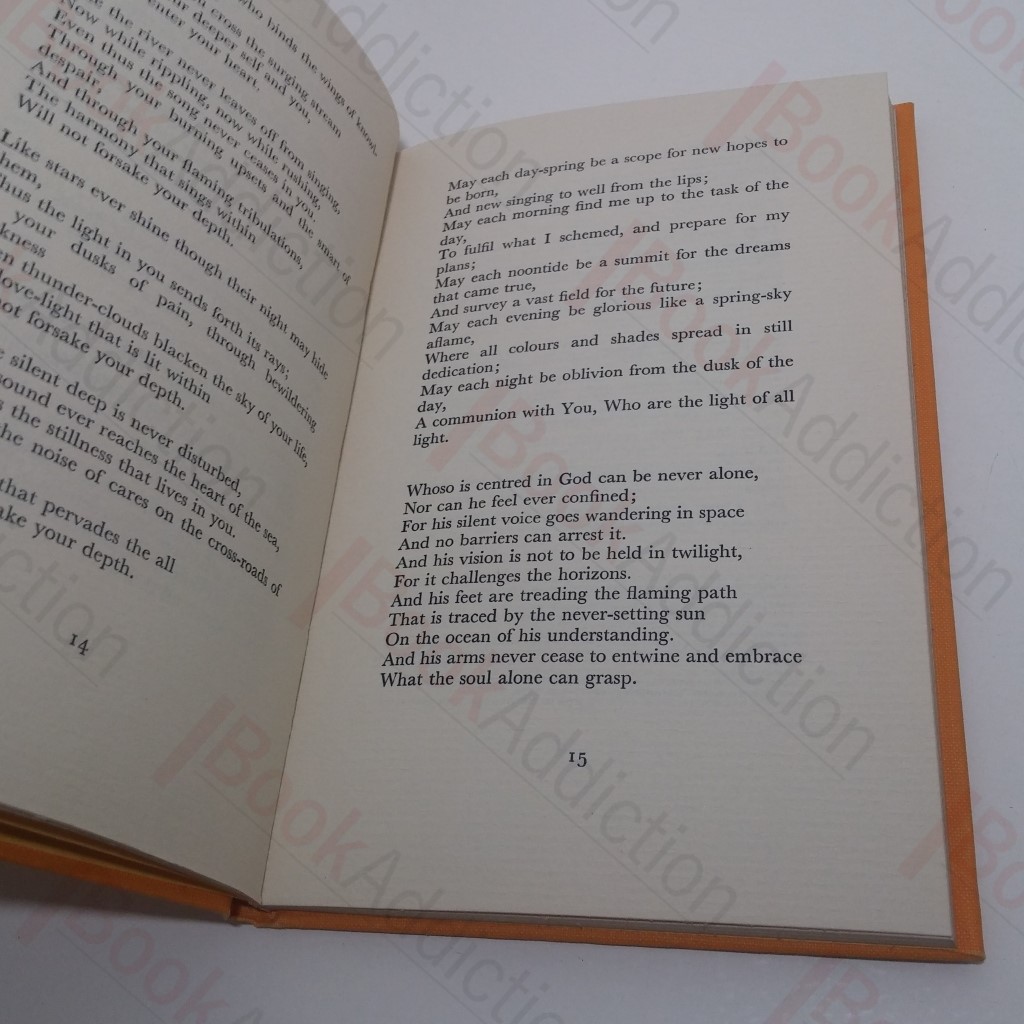 who binds the wings of knowl-
cross the surging stream
your deeper self and you,
enter your heart.
the river never leaves off from singing,
Now while rippling, now while rushing,
Even thus the song never ceases in you.
Through your burning upsets and the smart of
despair,
And through your flaming tribulations,
The harmony that sings within
Will not forsake your depth.
Like stars ever shine though their night may hide
them,
Thus the light in you sends forth its rays;
your dusks of pain, through bewildering
thunder-clouds blacken the sky of your life,
love-light that is lit within
not forsake your depth.
silent deep is never disturbed,
sound ever reaches the heart of the sea,
the stillness that lives in you.
the noise of cares on the cross-roads of
that pervades the all
your depth.
14
May each day-spring be a scope for new hopes to
be born,
And new singing to well from the lips;
May each morning find me up to the task of the
day,
To fulfil what I schemed, and prepare for my
plans;
May each noontide be a summit for the dreams
that came true,
And survey a vast field for the future;
May each evening be glorious like a spring-sky
aflame,
Where all colours and shades spread in still
dedication;
May each night be oblivion from the dusk of the
day,
A communion with You, Who are the light of all
light.
Whoso is centred in God can be never alone,
Nor can he feel ever confined;
For his silent voice goes wandering in space
And no barriers can arrest it.
And his vision is not to be held in twilight,
For it challenges the horizons.
And his feet are treading the flaming path
That is traced by the never-setting sun
On the ocean of his understanding.
And his arms never cease to entwine and embrace
What the soul alone can grasp.
15
BookAddiction